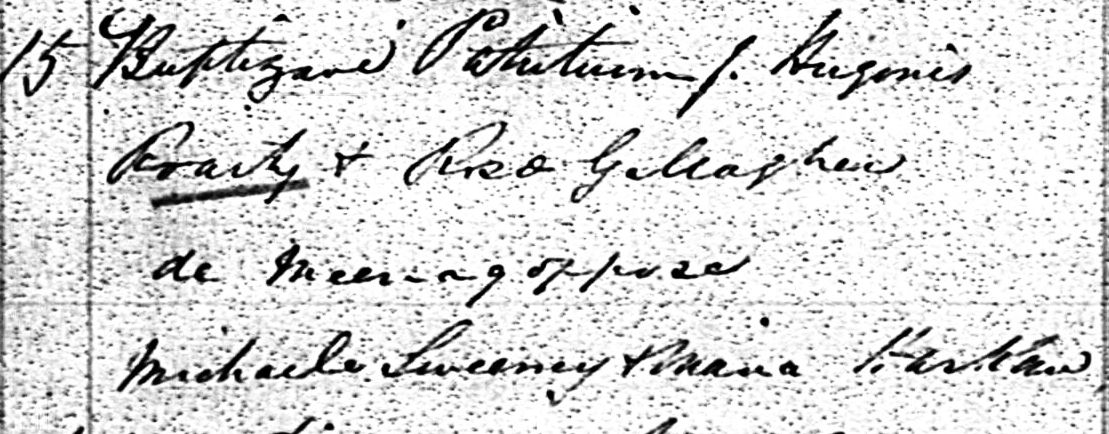 15 Baptizavi Patritium f. Hugonis
Roarty & Rosæ Gallagher
de Meenagoppoge
Michaele Sweeney & Maria Harkan